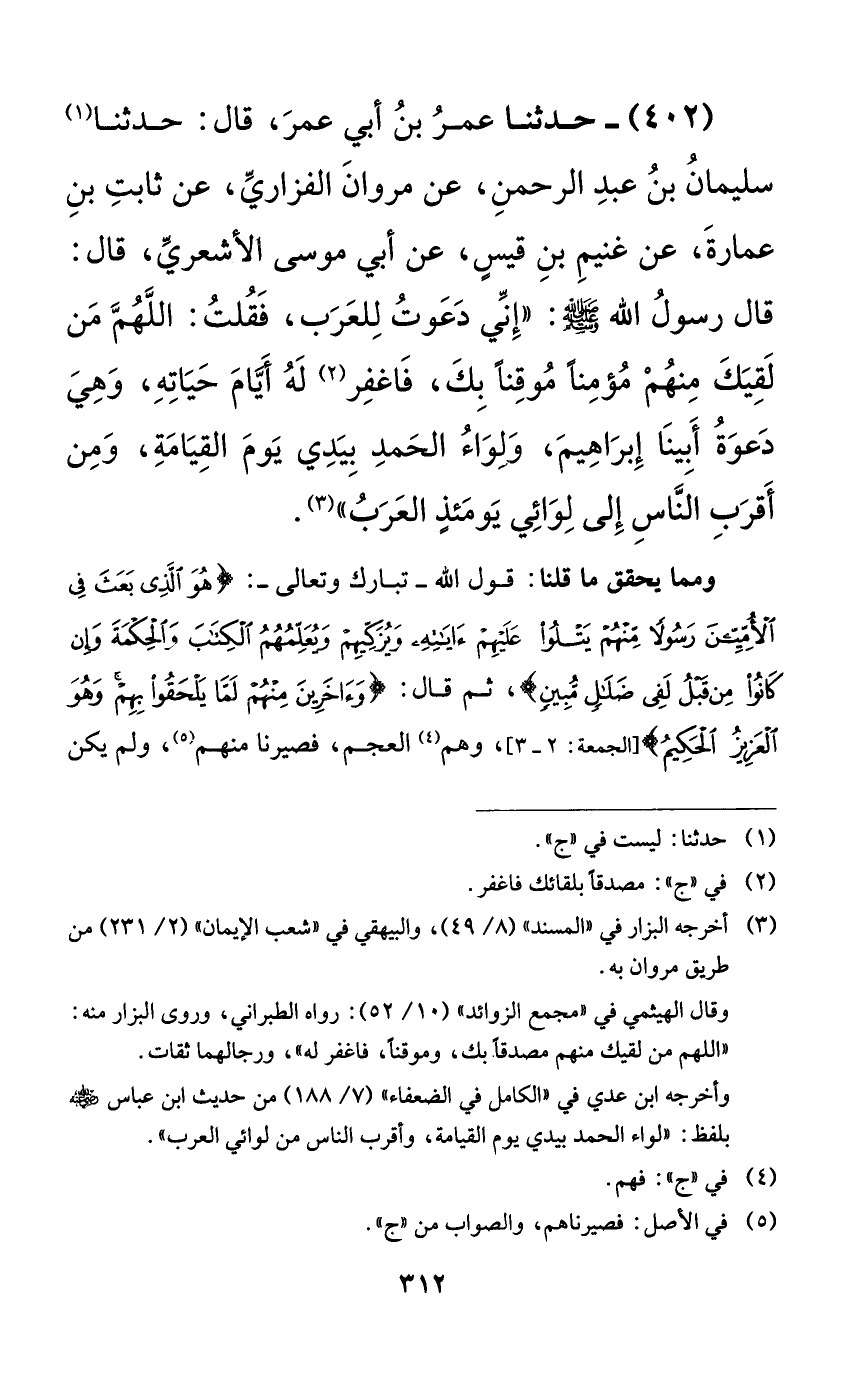 (٤٠٢) ـ حـدثنـا عمـرُ بنُ أبي عمرَ، قال: حـدثنـا(١)
سليمانُ بنُ عبدِ الرحمنِ، عن مروانَ الفزاريِّ، عن ثابتِ بنِ
عمارةَ، عن غنيمِ بنِ قيسٍ، عن أبي موسى الأشعريِّ، قال:
قال رسولُ الله ﷺ: «إِنِّي دَعَوتُ لِلعَرَب، فَقُلتُ: اللَّهُمَّ مَن
لَقِيَكَ مِنهُمْ مُؤمِناً مُوقِناً بِكَ، فَاغفِر(٢) لَهُ أَيَّامَ حَيَاتِهِ، وَهِيَ
دَعوَةُ أَبِينَا إِبرَاهِيمَ، وَلِوَاءُ الحَمدِ بِيَدِي يَومَ القِيَامَةِ، وَمِن
أَقرَبِ النَّاسِ إِلى لِوَائِي يَومَئذٍ العَرَبُ»(٣).
ومما يحقق ما قلنا: قـول الله ـ تبـارك وتعالى ـ: ﴿هُوَ ٱلَّذِى بَعَثَ فِى
ٱلْأُمِّيِّـۧنَ رَسُولًا مِّنْهُمْ يَتْـلُوا۟ عَلَيْهِمْ ءَايَـٰتِهِۦ وَيُزَكِّيهِمْ وَيُعَلِّمُهُمُ ٱلْكِتَـٰبَ وَٱلْحِكْمَةَ وَإِن
كَانُوا۟ مِن قَبْلُ لَفِى ضَلَـٰلٍ مُّبِينٍ﴾، ثـم قـال: ﴿وَءَاخَرِينَ مِنْهُمْ لَمَّا يَلْحَقُوا۟ بِهِمْ ۚ وَهُوَ
ٱلْعَزِيزُ ٱلْحَكِيمُ﴾[الجمعة: ٢ ـ ٣]، وهم(٤) العجـم، فصيرنا منهـم(٥)، ولم يكن
(١) حدثنا: ليست في «ج».
(٢) في «ج»: مصدقاً بلقائك فاغفر.
(٣) أخرجه البزار في «المسند» (٨/ ٤٩)، والبيهقي في «شعب الإيمان» (٢/ ٢٣١) من
طريق مروان به.
وقال الهيثمي في «مجمع الزوائد» (١٠/ ٥٢): رواه الطبراني، وروى البزار منه:
«اللهم من لقيك منهم مصدقاً بك، وموقناً، فاغفر له»، ورجالهما ثقات.
وأخرجه ابن عدي في «الكامل في الضعفاء» (٧/ ١٨٨) من حديث ابن عباس ﵁
بلفظ: «لواء الحمد بيدي يوم القيامة، وأقرب الناس من لوائي العرب».
(٤) في «ج»: فهم.
(٥) في الأصل: فصيرناهم، والصواب من «ج».
٣١٢